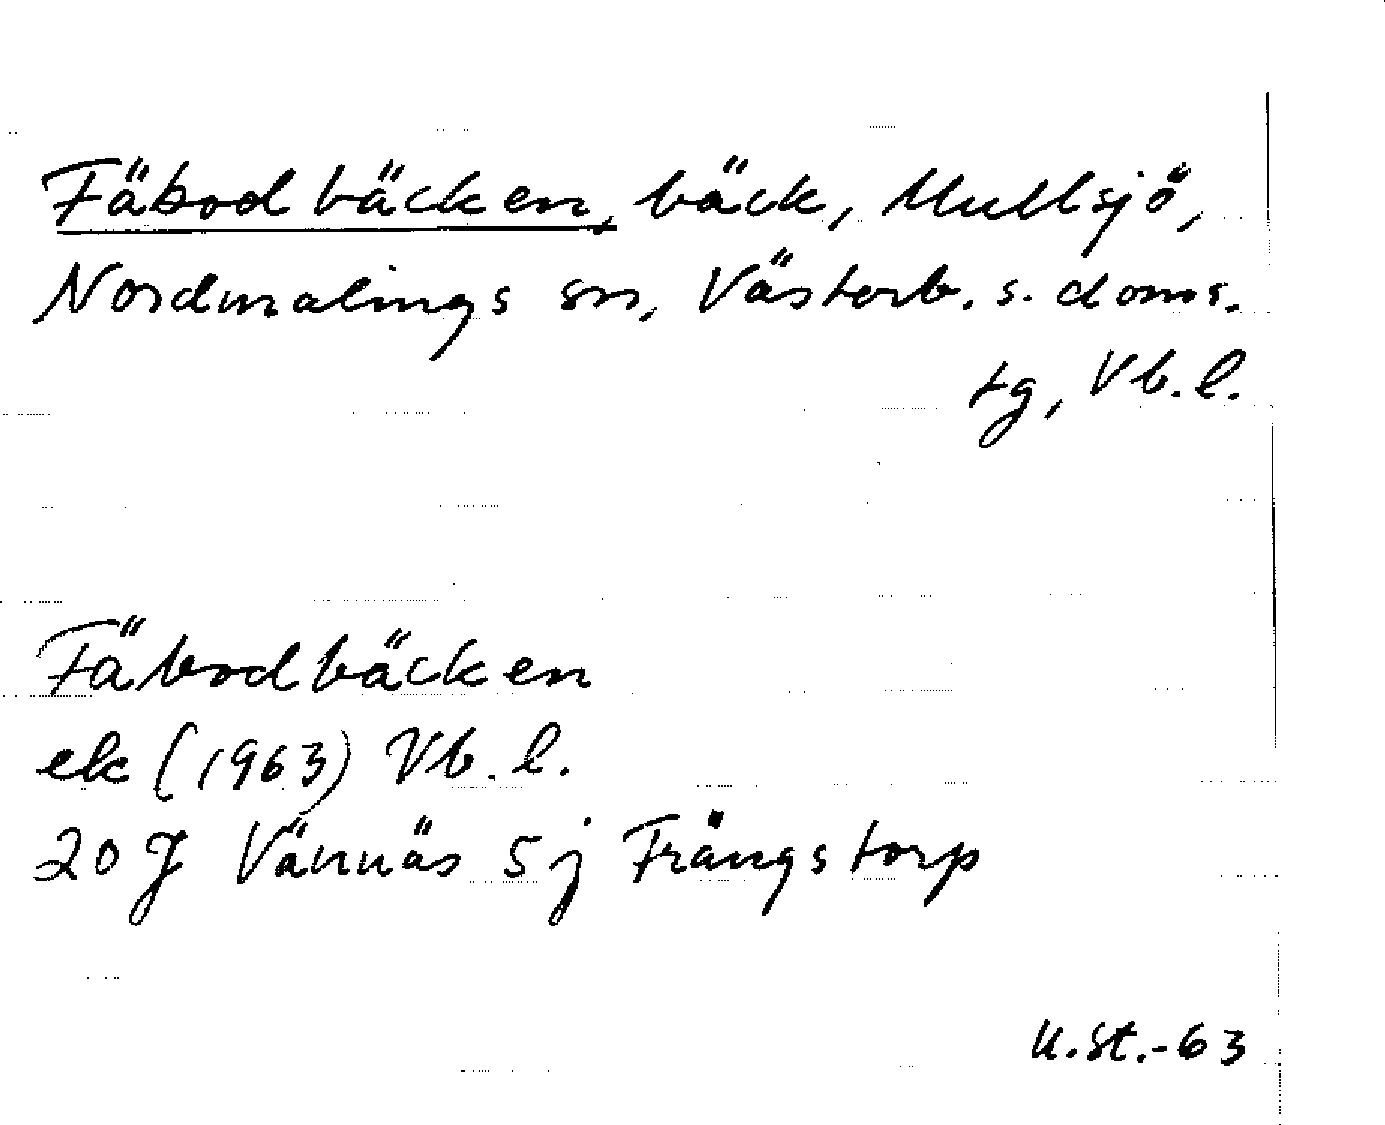 Fäbodbäcken, bäck, Mullsjö,
Nordmalings sn, Västerb. s. doms.
tg, Vb. l.
Fäbodbäcken
ek (1963) Vb. l.
20 J Vännäs 5 j Frängstorp
U.St.-63